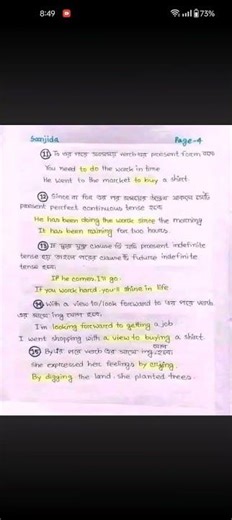 8:49
73%
Sanjida Page-4
(11) To এর পরে verb এর present form হয়
You need to do the work in time
He went to the market to buy a shirt
(12) Since বা for
present perfect continuous tense হয়
He has been doing the work since the morning
It has been raining for two hours.
(13) If যুক্ত clause টি present indefinite
tense হয় পরের clause টি future indefinite
tense হয়
If he comes, I'll go.
If you work hard, you'll shine in life
(14) With a view to/look forward to এর পরে verb
এর সাথে ing যোগ হয়
I'm looking forward to getting a job.
I went shopping with a view to buying a shirt.
(15) By এর পরে verb এর সাথে ing হয়
She expressed her feelings by crying.
By digging the land, she planted trees.